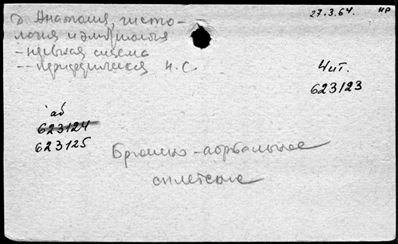 27.3.64. НР
д. Анатомия, гисто-
логия и эмбриология
- нервная система
-- периферическая Н.С.
Чит.
623123
аб
623124
623125
Брюшно-аортальное
сплетение